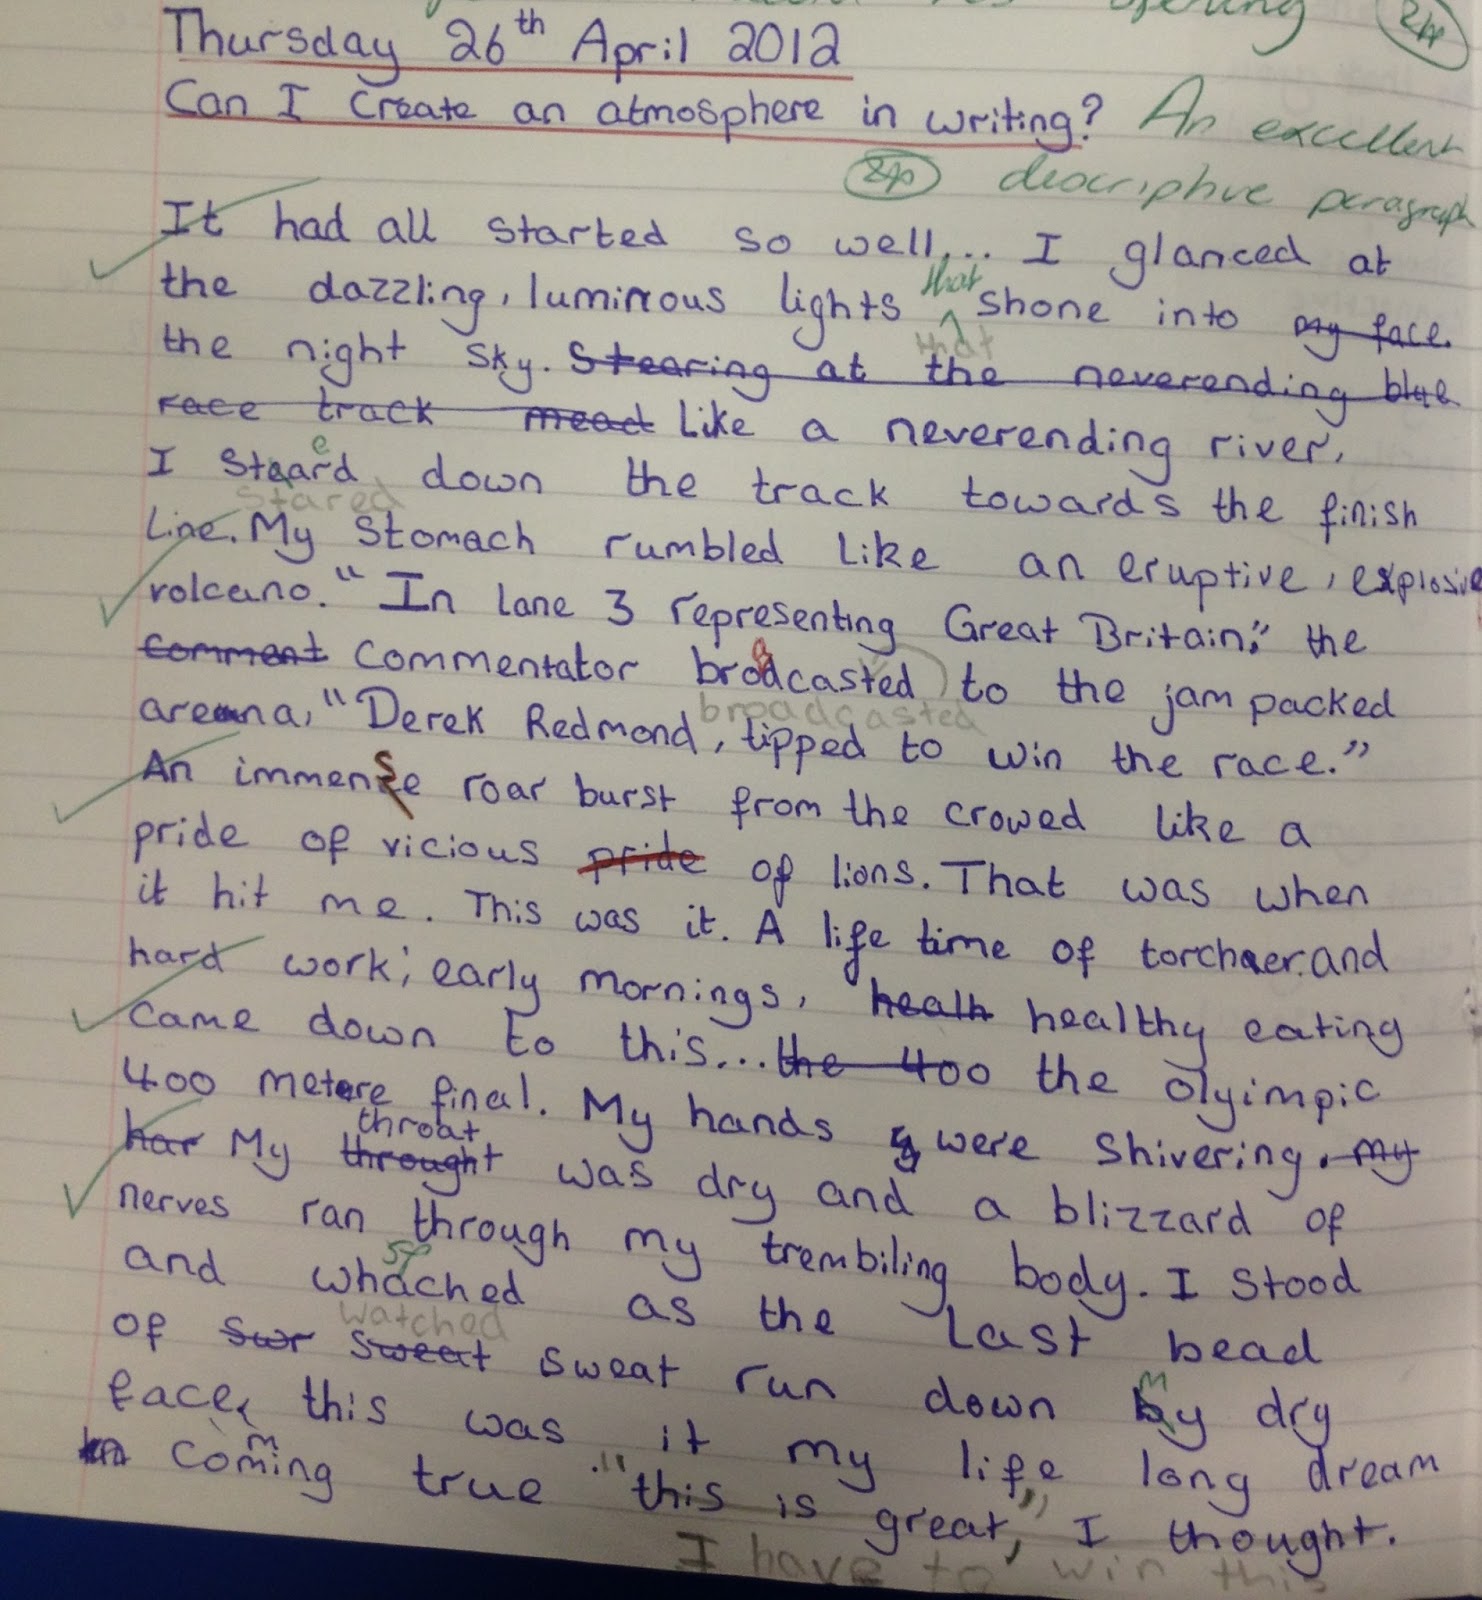 opening 2hp
Thursday 26th April 2012
Can I create an atmosphere in writing? An excellent
2hp descriptive paragraph
It had all started so well,... I glanced at
that
the dazzling, luminous lights shone into my face.
that
the night sky. Stearing at the neverending blue
race track mead Like a neverending river,
e
I staard down the track towards the finish
stared
Line. My stomach rumbled like an eruptive, explosive
volcano. "In lane 3 representing Great Britain," the
comment commentator brodcasted to the jam packed
broadcasted
arena, "Derek Redmond, tipped to win the race."
An immense roar burst from the crowed like a
pride of vicious pride of lions. That was when
it hit me. This was it. A life time of torchaer and
hard work; early mornings, healh healthy eating
came down to this... the 400 the olyimpic
400 metere final. My hands were shivering. my
throat
har My throught was dry and a blizzard of
nerves ran through my trembiling body. I stood
sp
and whached as the last bead
watched
of swr sweat sweat run down my dry
face, this was it my life long dream
coming true. "this is great," I thought.
I have to win this